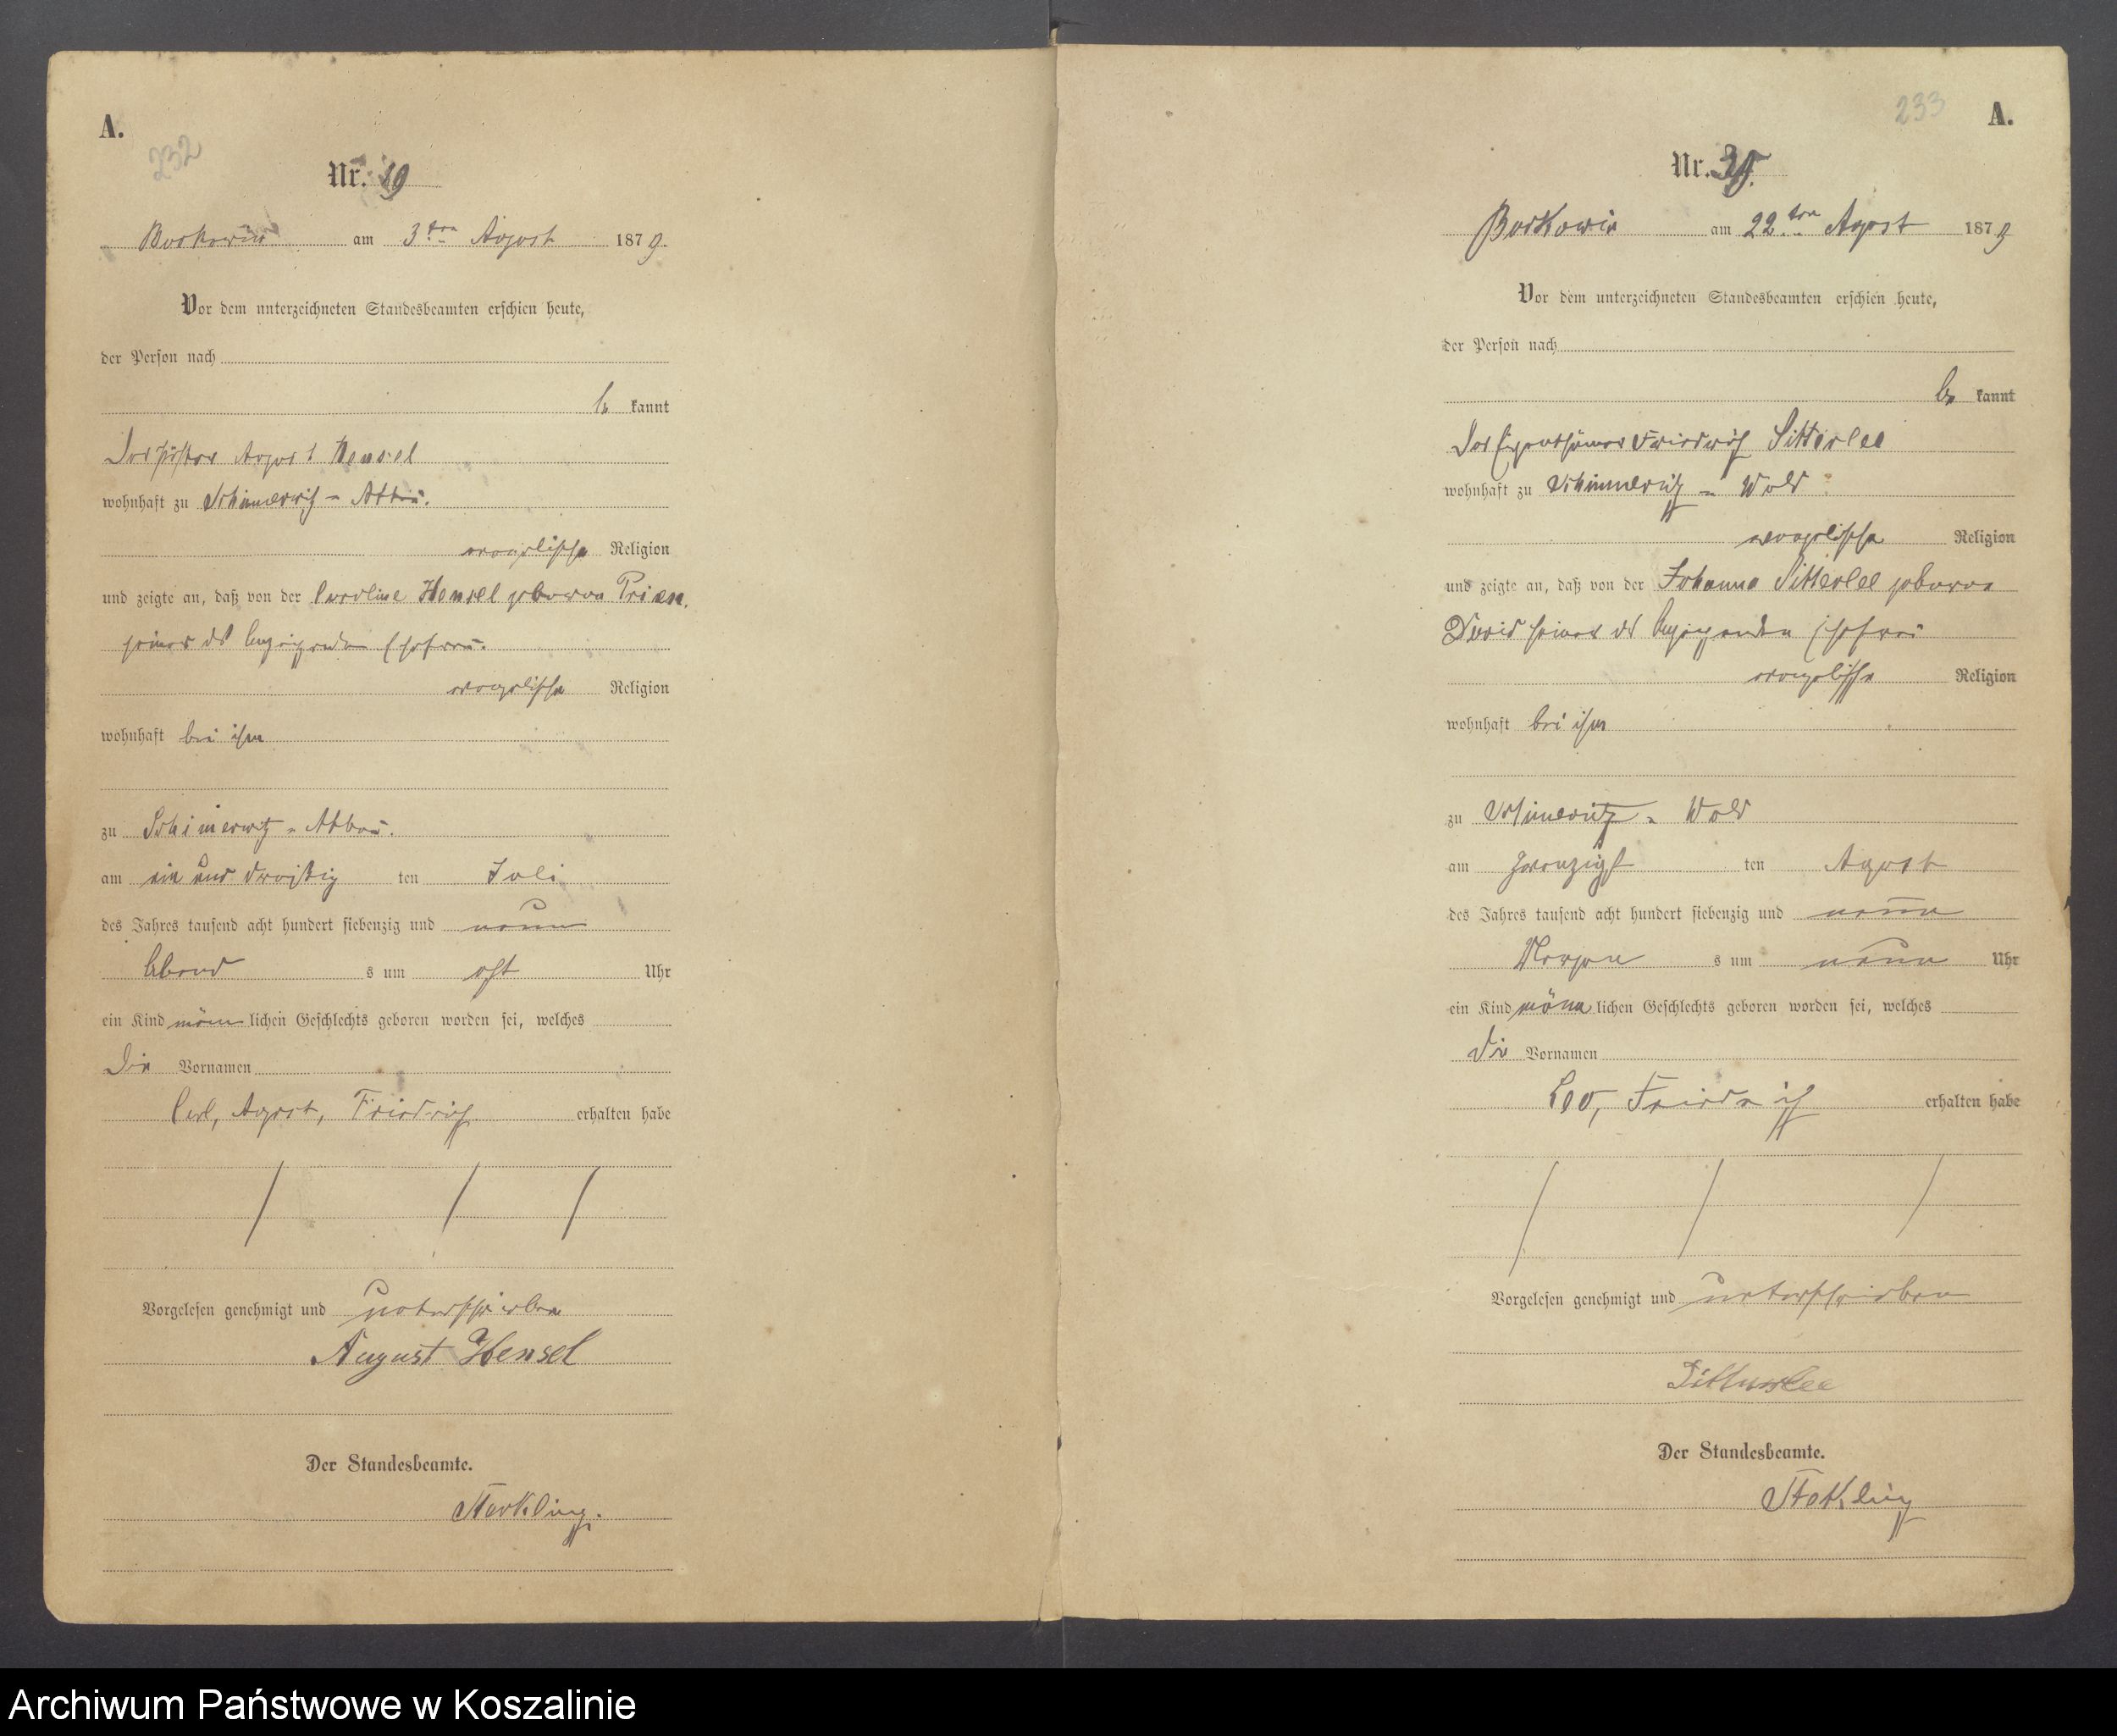 A.
232
Nr. 19
am 3ten August 1879.
Vor dem unterzeichneten Standesbeamten erschien heute,
der Person nach
be kannt
Der August Hensel
wohnhaft zu Schimerwitz - Abbau.
evangelische Religion
und zeigte an, daß von der Caroline Hensel geborene Prien,
seiner des Anzeigenden Ehefrau.
evangelische Religion
wohnhaft bei ihm
zu Schimerwitz - Abbau.
am ein und dreißig ten Juli
des Jahres tausend acht hundert siebenzig und neun
Abend s um acht Uhr
ein Kind männ lichen Geschlechts geboren worden sei, welches
Die Vornamen
Carl, August, Friedrich erhalten habe
Vorgelesen genehmigt und unterschrieben
August Hensel
Der Standesbeamte.
233
A.
Nr.
am 22ten August 1879
Vor dem unterzeichneten Standesbeamten erschien heute,
der Person nach
be kannt
Der Eigenthümer Friedrich Sitterlee
wohnhaft zu Schimmeritz - Wald
evangelische Religion
und zeigte an, daß von der Johanna Sitterlee geborne
seiner des Anzeigenden Ehefrau
evangelische Religion
wohnhaft bei ihm
zu Schimeritz - Wald
am zwanzigst ten August
des Jahres tausend acht hundert siebenzig und neun
Morgen s um neun Uhr
ein Kind männ lichen Geschlechts geboren worden sei, welches
die Vornamen
Leo, Friedrich erhalten habe
Vorgelesen genehmigt und unterschrieben
Sitterlee
Der Standesbeamte.
Archiwum Państwowe w Koszalinie